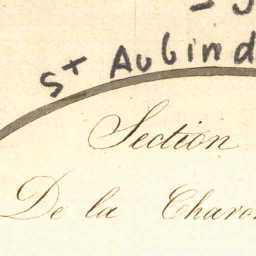 St Aubin d
Section
De la Charo